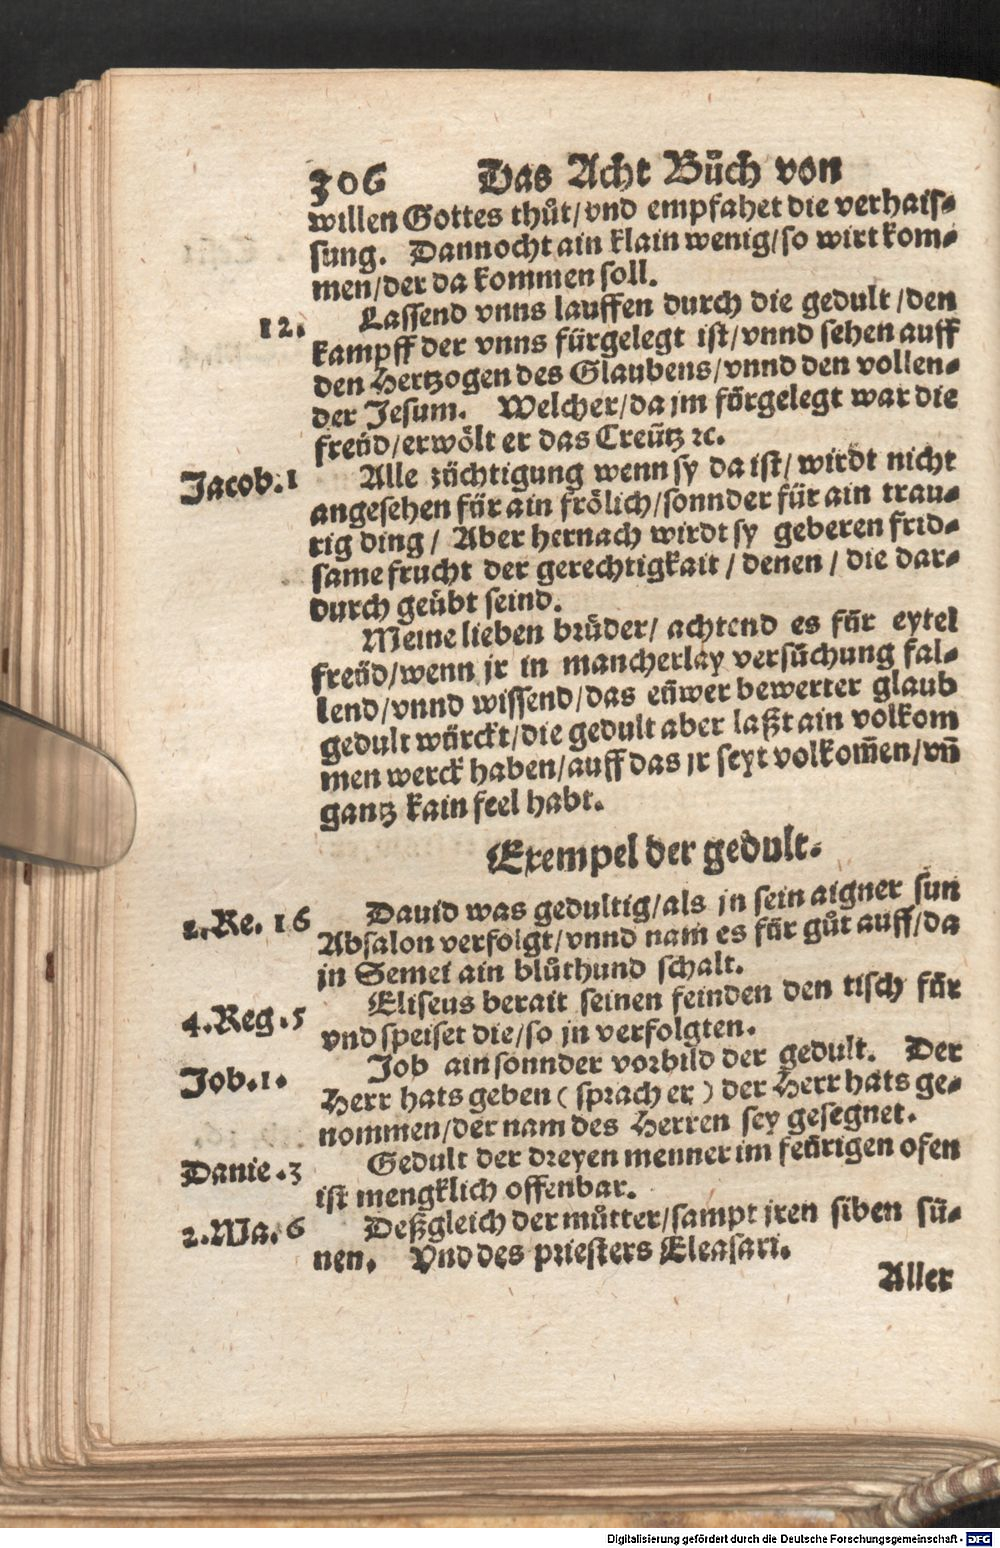 306 Das Acht Bůch von
willen Gottes thůt/vnd empfahet die verhais⸗
sung. Dannocht ain klain wenig/so wirt kom⸗
men/der da kommen soll.
12. Lassend vnns lauffen durch die gedult/den
kampff der vnns fürgelegt ist/vnnd sehen auff
den Hertzogen des Glaubens/vnnd den vollen⸗
der Jesum. Welcher/da jm fürgelegt war die
freüd/erwölt er das Creütz ꝛc.
Jacob.1 Alle züchtigung wenn sy da ist/wirdt nicht
angesehen für ain frölich/sonnder für ain trau⸗
rig ding/ Aber hernach wirdt sy geberen frid⸗
same frucht der gerechtigkait/denen/die dar⸗
durch geübt seind.
Meine lieben brüder/ achtend es für eytel
freüd/wenn jr in mancherlay versůchung fal⸗
lend/vnnd wissend/das eüwer bewerter glaub
gedult würckt/die gedult aber laßt ain volkom
men werck haben/auff das jr seyt volkom̃en/vñ
gantz kain feel habt.
Exempel der gedult.
2.Re. 16 Dauid was gedultig/als jn sein aigner sun
Absalon verfolgt/vnnd nam es für gůt auff/da
jn Semei ain blůthund schalt.
4.Reg.5 Eliseus berait seinen feinden den tisch für
vnd speiset die/so jn verfolgten.
Job.1. Job ain sonnder vorbild der gedult. Der
Herr hats geben (sprach er) der Herr hats ge⸗
nommen/der nam des Herren sey gesegnet.
Danie.3 Gedult der dreyen menner im feürigen ofen
ist mengklich offenbar.
2.Ma.6 Deßgleich der můtter/sampt jren siben sü⸗
nen. Vnd des priesters Eleasari.
Aller
Digitalisierung gefördert durch die Deutsche Forschungsgemeinschaft - DFG